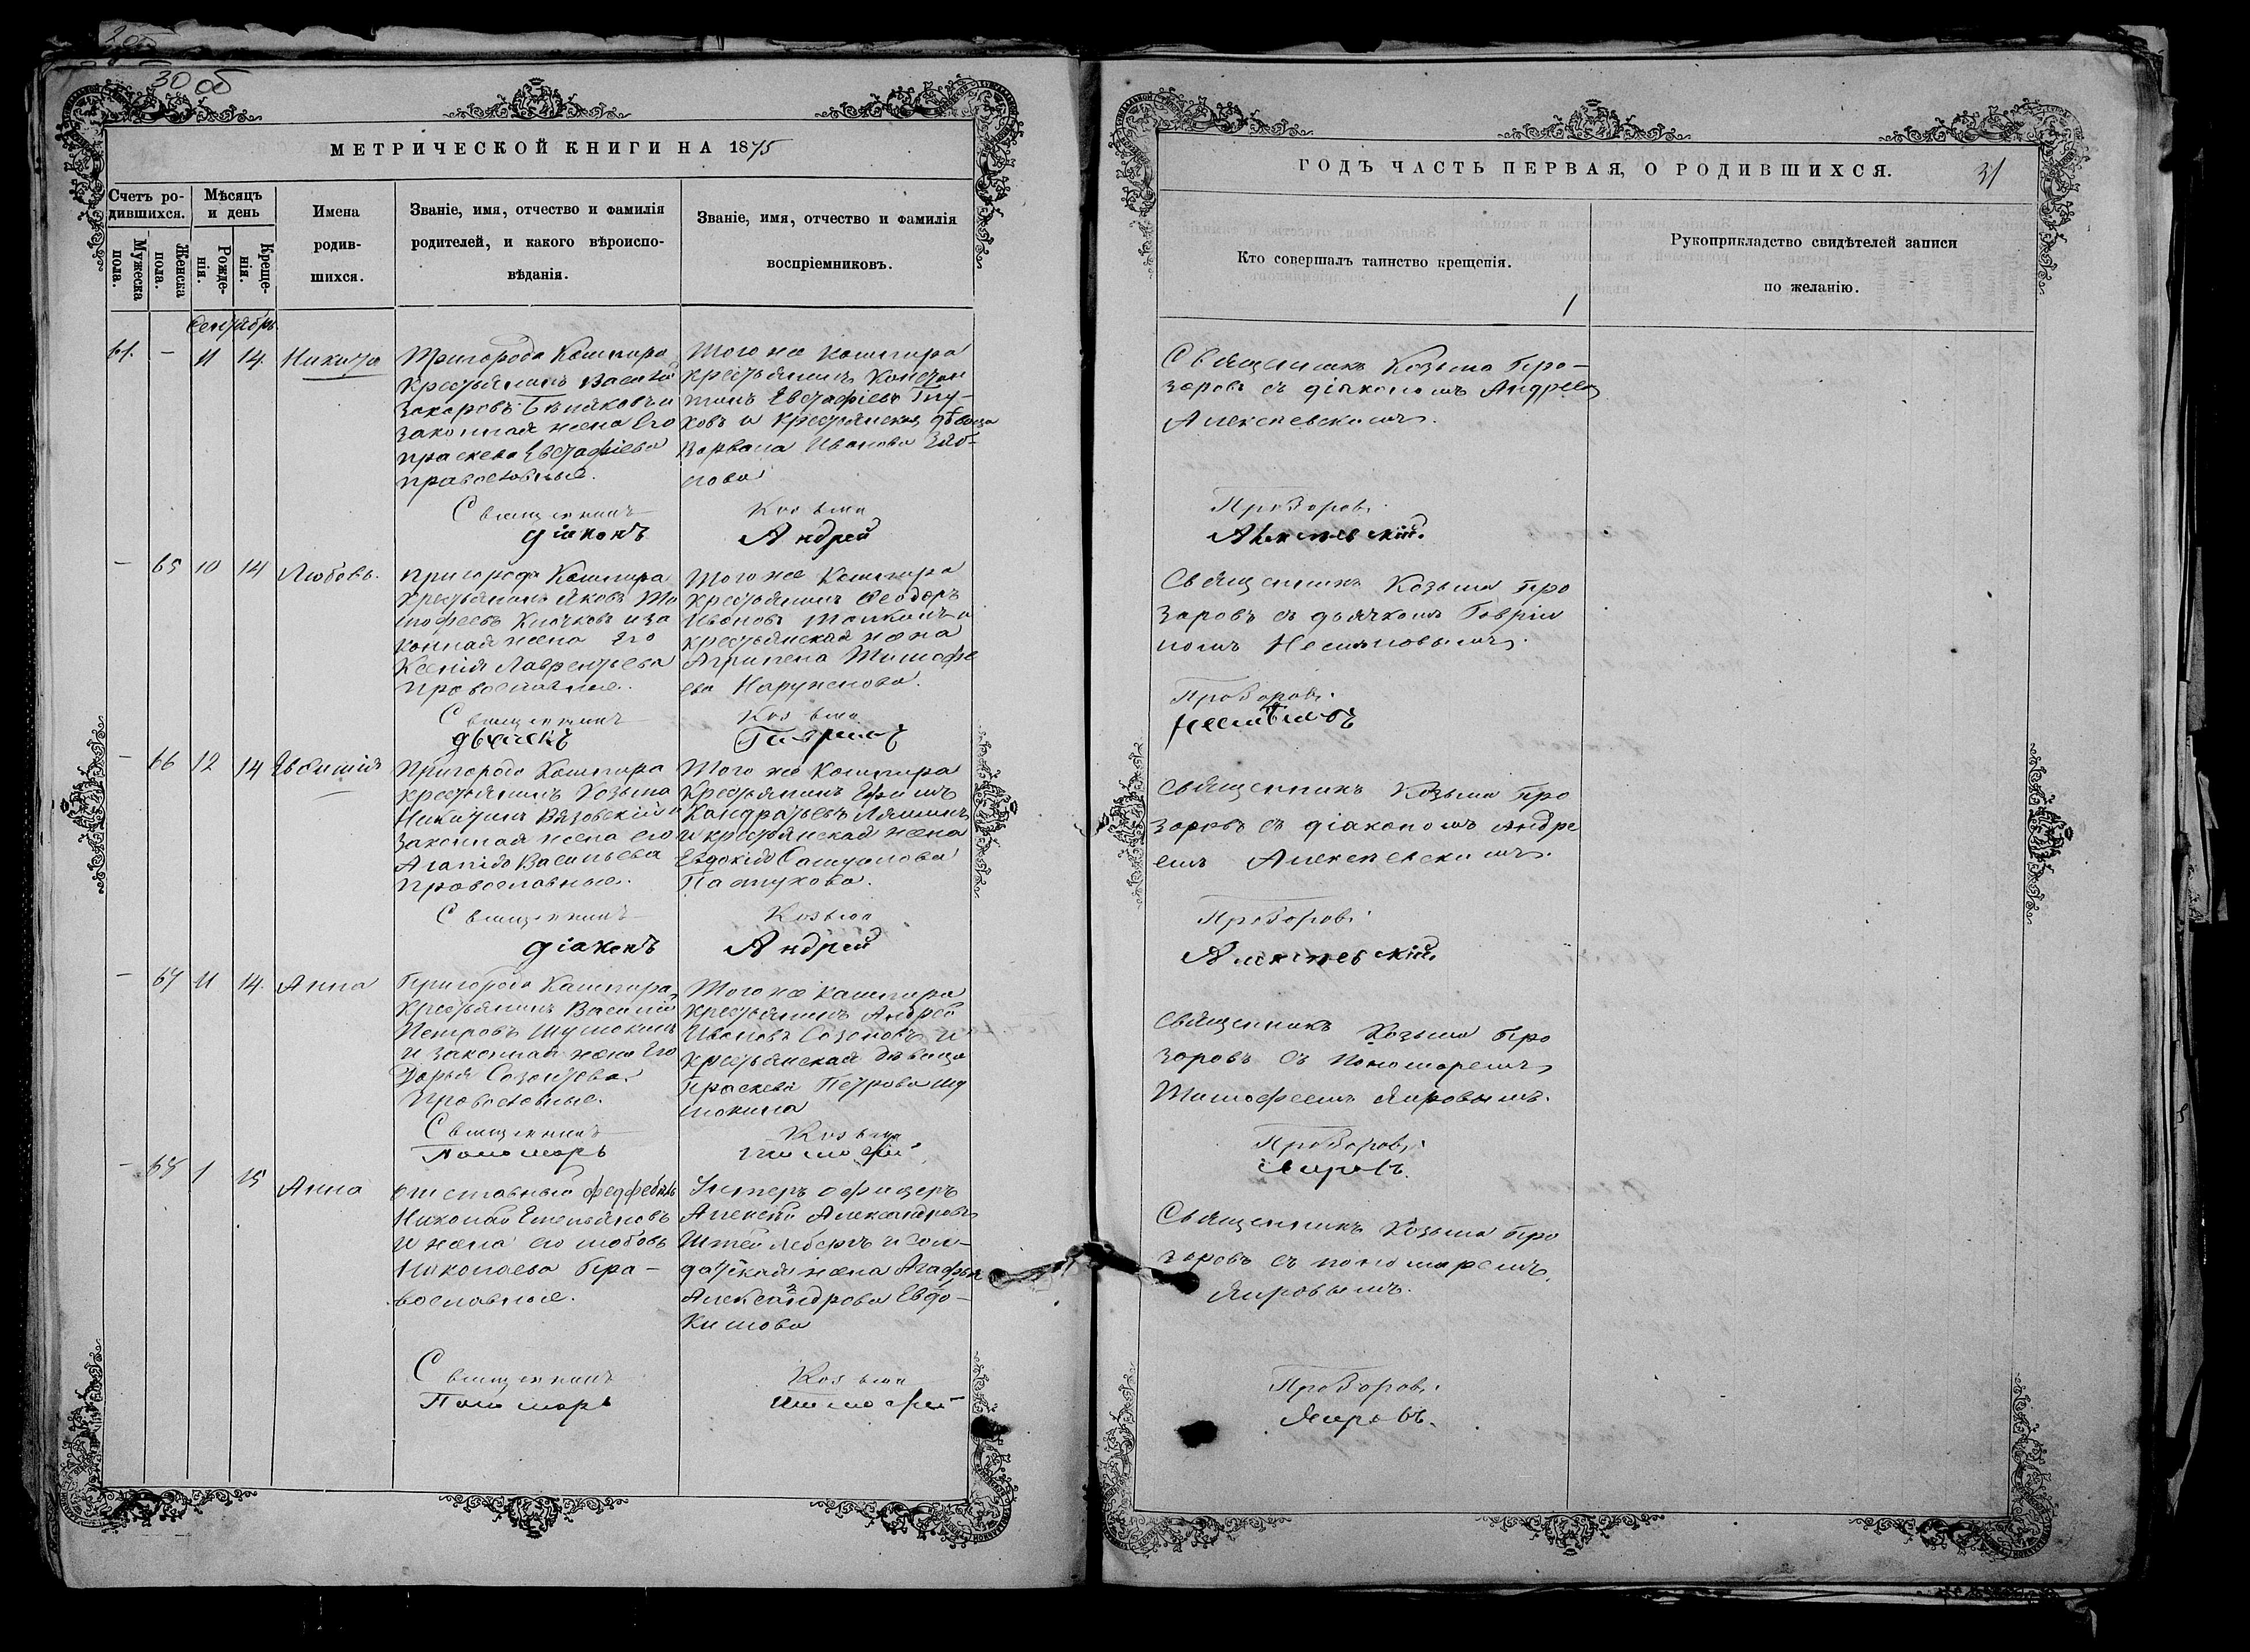 30 об
МЕТРИЧЕСКОЙ КНИГИ НА 1875
Счетъ ро-
дившихся.
Мужеска пола.
Женска пола.
Мѣсяцъ
и день
Рожде-
нія.
Креще-
нія.
Имена
родив-
шихся.
Званіе, имя, отчество и фамилія
родителей, и какого вѣроиспо-
вѣданія.
Званіе, имя, отчество и фамилія
воспріемниковъ.
Сентябрь
61. – 11 14. Никита
Пригорода Кашпира
Крестьянинъ Василій
Захаровъ и
законная жена его
Праскева Евстафіева
православные.
Того же Кашпира
крестьянинъ Констан
тинъ Евстафіевъ Глу-
ховъ и крестьянская дѣвица
Варвара Иванова Зяб-
лова
Священникъ Козьма
діаконъ Андрей
– 65 10 14 Любовь.
Пригорода Кашпира
Крестьянинъ Яковъ Ти
мофеевъ Клочковъ и за
конная жена его
Ксенія Лаврентьева
Православные.
Того же Кашпира
Крестьянинъ Феодоръ
Ивановъ и
крестьянская жена
Агрипена Тимофе
ева
Священникъ Козьма
дьячекъ Гавріилъ
– 66 12 14 Евфимія
Пригорода Кашпира
крестьянинъ Козьма
Никитинъ Вязовскій и
Законная жена его
Агапія Васильева
Православные.
Того же Кашпира
Крестьянинъ Ефимъ
Кандратьевъ Ляминъ
и крестьянская жена
Евдокія Самуилова
Пастухова.
Священникъ Козьма
діаконъ Андрей
– 67 11 14. Анна
Пригорода Кашпира,
Крестьянинъ Василій
Петровъ Шутокинъ
и законная жена его
Дарья Созонтова.
Православные.
Того же Кашпира
крестьянинъ Андрей
Ивановъ Созоновъ и
крестьянская дѣвица
Праскева Петрова Шу
токина
Священникъ Козьма
Пономарь Тимофей
– 68 1 15 Анна
Отставный федфебель
Николай Емельяновъ
и жена его Любовь
Николаева Пра-
вославные.
Унтеръ офицеръ
Алексей Александровъ
и сол-
датская жена Агафья
Александрова Евдо-
кимова
Священникъ Козьма
Пономарь Тимофей
ГОДЪ ЧАСТЬ ПЕРВАЯ, О РОДИВШИХСЯ. 31
Кто совершалъ таинство крещенія.
Рукоприкладство свидѣтелей записи
по желанію.
Священникъ Козьма Про-
заровъ съ діакономъ Андреемъ
Алексеевскимъ.
Прозоровъ.
Алексеевскій.
Священникъ Козьма Про
заровъ съ дьячкомъ Гавріи
ломъ Несмеловымъ.
Прозоровъ.
Несмѣловъ
Священникъ Козьма Про
заровъ съ діакономъ Андре
емъ Алексеевскимъ.
Прозоровъ.
Алексеевскій.
Священникъ Козьма Про
заровъ съ пономаремъ
Тимофеемъ Яировымъ.
Прозоровъ.
Яировъ.
Священникъ Козьма Про
заровъ съ пономаремъ
Яировымъ.
Прозоровъ.
Яировъ.